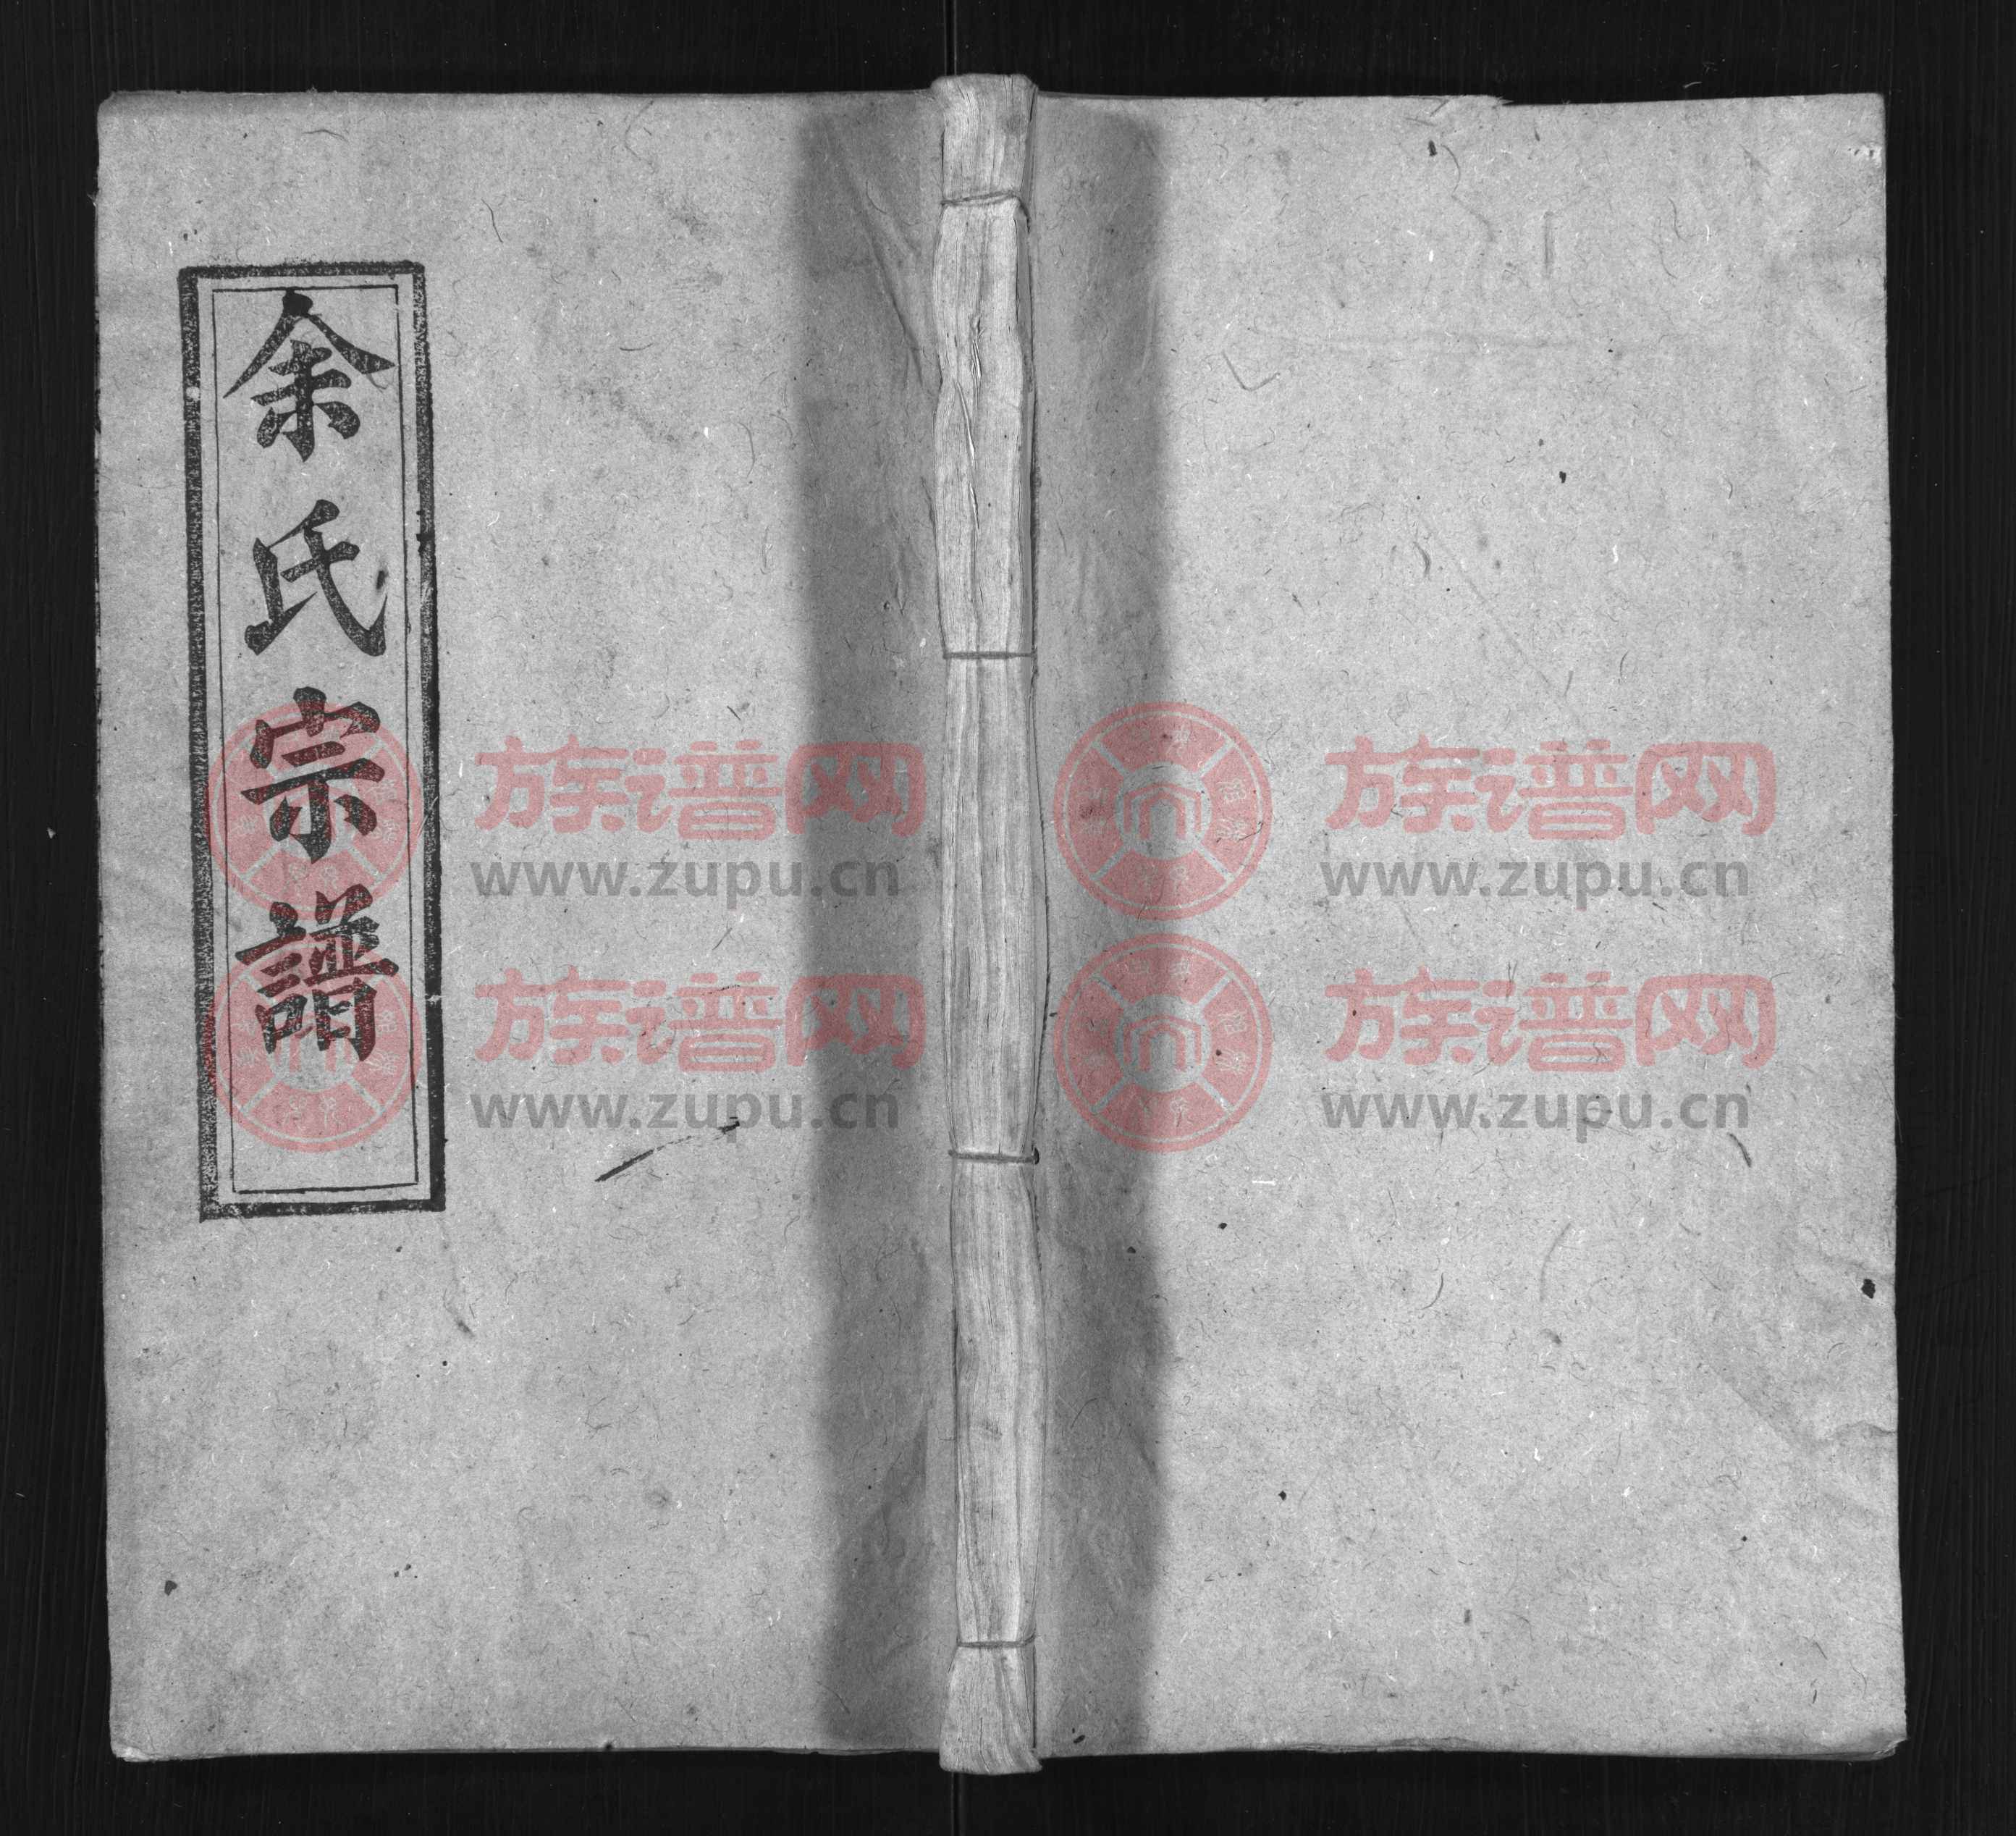 余氏宗譜
族谱网
www.zupu.cn
族谱网
www.zupu.cn
族谱网
www.zupu.cn
族谱网
www.zupu.cn